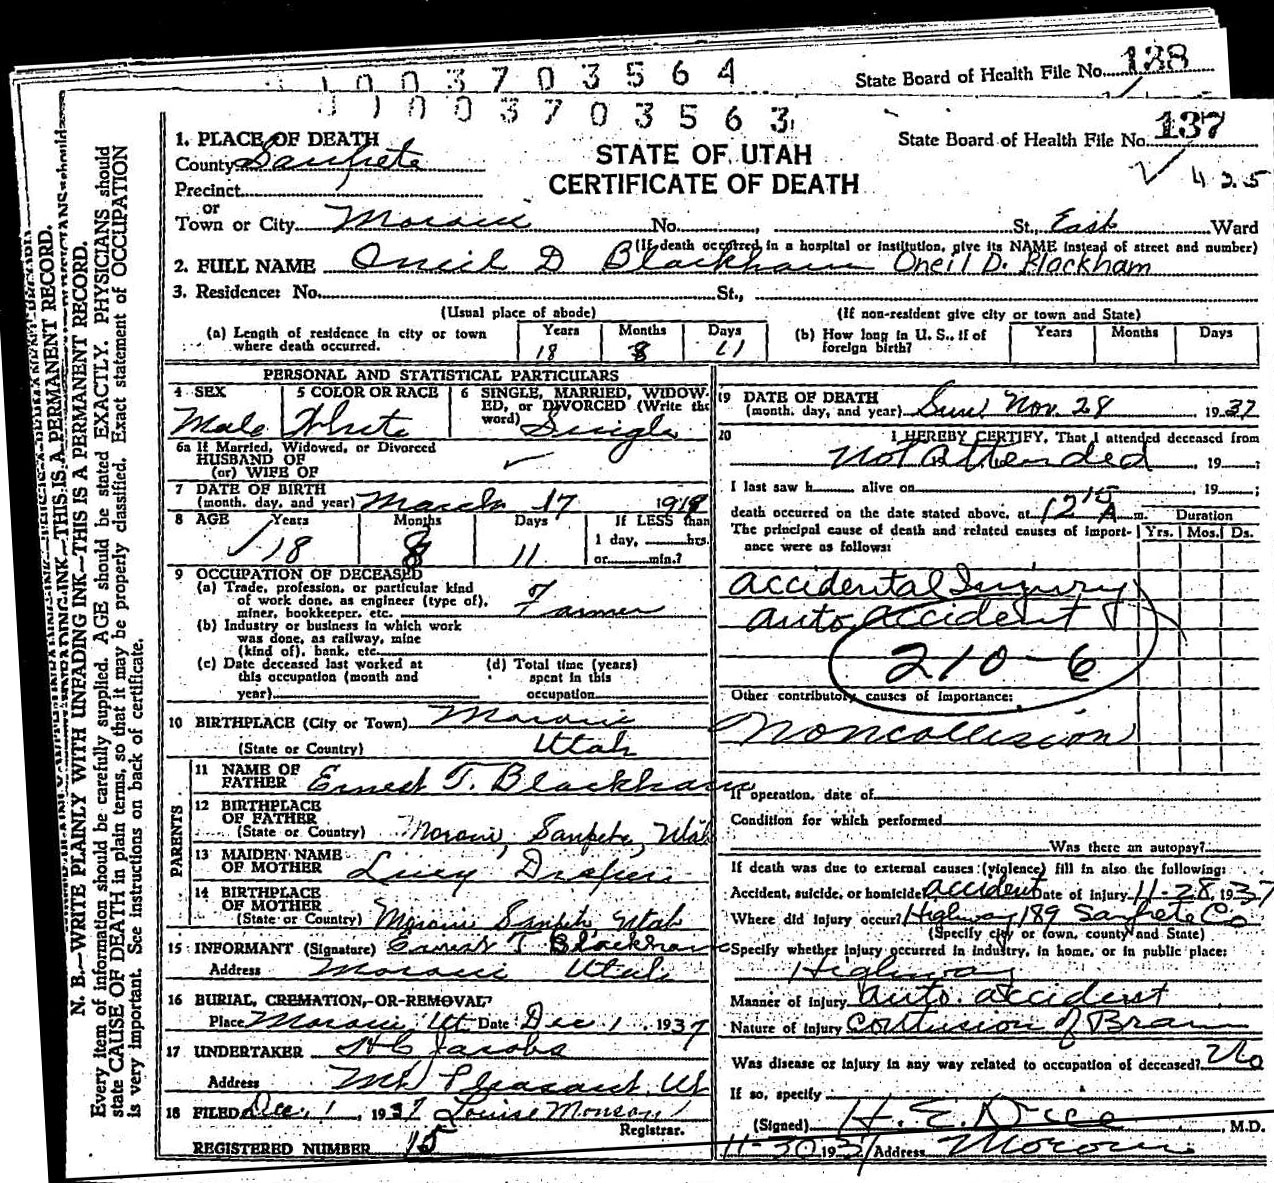 1003703564
State Board of Health File No. 138
1003703563
State Board of Health File No. 137
4 25
1. PLACE OF DEATH
County Sanpete
STATE OF UTAH
CERTIFICATE OF DEATH
Precinct
or
Town or City Moroni No. St., East Ward
(If death occurred in a hospital or institution, give its NAME instead of street and number)
2. FULL NAME Oneil D Blackham Oneil D. Blackham
3. Residence: No. St.,
(Usual place of abode) (If non-resident give city or town and State)
(a) Length of residence in city or town where death occurred. Years 18 Months 8 Days 11
(b) How long in U. S., if of foreign birth? Years Months Days
PERSONAL AND STATISTICAL PARTICULARS
4 SEX Male
5 COLOR OR RACE White
6 SINGLE, MARRIED, WIDOWED, or DIVORCED (Write the word) Single
6a If Married, Widowed, or Divorced
HUSBAND OF
(or) WIFE OF
7 DATE OF BIRTH
(month, day, and year) March 17 1919
8 AGE Years 18 Months 8 Days 11 If LESS than
1 day, hrs.
or min.?
9 OCCUPATION OF DECEASED
(a) Trade, profession, or particular kind
of work done, as engineer (type of),
miner, bookkeeper, etc. Farmer
(b) Industry or business in which work
was done, as railway, mine
(kind of), bank, etc.
(c) Date deceased last worked at
this occupation (month and
year)
(d) Total time (years)
spent in this
occupation
10 BIRTHPLACE (City or Town) Moroni
(State or Country) Utah
PARENTS
11 NAME OF
FATHER Ernest T. Blackham
12 BIRTHPLACE
OF FATHER
(State or Country) Moroni, Sanpete, Utah
13 MAIDEN NAME
OF MOTHER Lucy Draper
14 BIRTHPLACE
OF MOTHER
(State or Country) Moroni Sanpete, Utah
15 INFORMANT (Signature) Ernest T Blackham
Address Moroni Utah
16 BURIAL, CREMATION, OR REMOVAL?
Place Moroni Ut Date Dec 1, 1937
17 UNDERTAKER H C Jacobs
Address Mt Pleasant, Ut
18 FILED Dec. 1, 1937 Louise Monson
Registrar.
REGISTERED NUMBER 15
19 DATE OF DEATH
(month, day, and year) Sun Nov. 28 1937
20 I HEREBY CERTIFY, That I attended deceased from
Not Attended, 19 ;
I last saw h alive on , 19 ;
death occurred on the date stated above, at 12 15 A m. Duration
The principal cause of death and related causes of importance were as follows: Yrs. Mos. Ds.
accidental Injury
auto accident
210-6
Other contributory causes of importance:
Noncollision
If operation, date of
Condition for which performed
Was there an autopsy?
If death was due to external causes (violence) fill in also the following:
Accident, suicide, or homicide accident Date of injury 11-28, 1937
Where did injury occur? Highway 189 Sanpete Co
(Specify city or town, county and State)
Specify whether injury occurred in industry, in home, or in public place:
Highway
Manner of injury auto accident
Nature of injury Contusion of Brain
Was disease or injury in any way related to occupation of deceased? No
If so, specify
(Signed) , M.D.
11-30 1937 Address Moroni
N. B.—WRITE PLAINLY WITH UNFADING INK—THIS IS A PERMANENT RECORD.
Every item of information should be carefully supplied. AGE should be stated EXACTLY. PHYSICIANS should
state CAUSE OF DEATH in plain terms, so that it may be properly classified. Exact statement of OCCUPATION
is very important. See instructions on back of certificate.